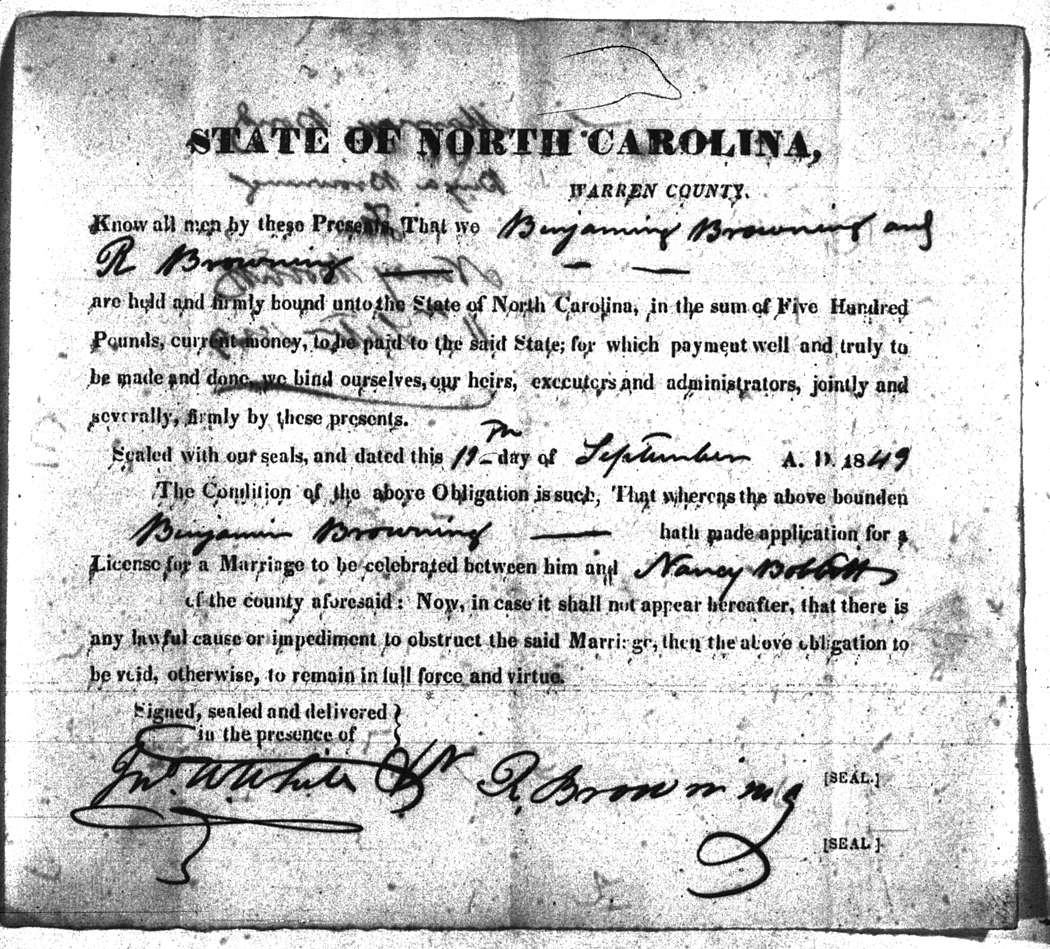 STATE OF NORTH CAROLINA,
WARREN COUNTY.
Know all men by these Presents, That we Benjaming Browning and
R Browning
are held and firmly bound unto the State of North Carolina, in the sum of Five Hundred
Pounds, current money, to be paid to the said State; for which payment well and truly to
be made and done, we bind ourselves, our heirs, executors and administrators, jointly and
severally, firmly by these presents.
Sealed with our seals, and dated this 19th day of September A. D. 1849
The Condition of the above Obligation is such, That whereas the above bounden
Benjamin Browning hath made application for a
License for a Marriage to be celebrated between him and Nancy Bobbitt
of the county aforesaid: Now, in case it shall not appear hereafter, that there is
any lawful cause or impediment to obstruct the said Marriage, then the above obligation to
be void, otherwise, to remain in full force and virtue.
Signed, sealed and delivered
in the presence of
Jno. W. White R. Browning [SEAL.]
[SEAL]